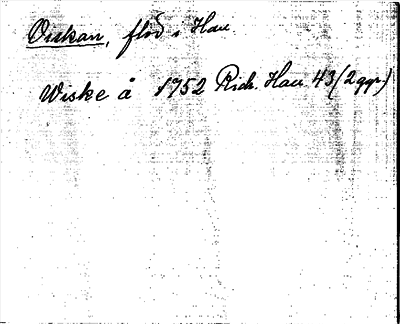 Viskan, flod i Hall.
Wiske å 1752 Rich. Hall 43 (2 ggr)